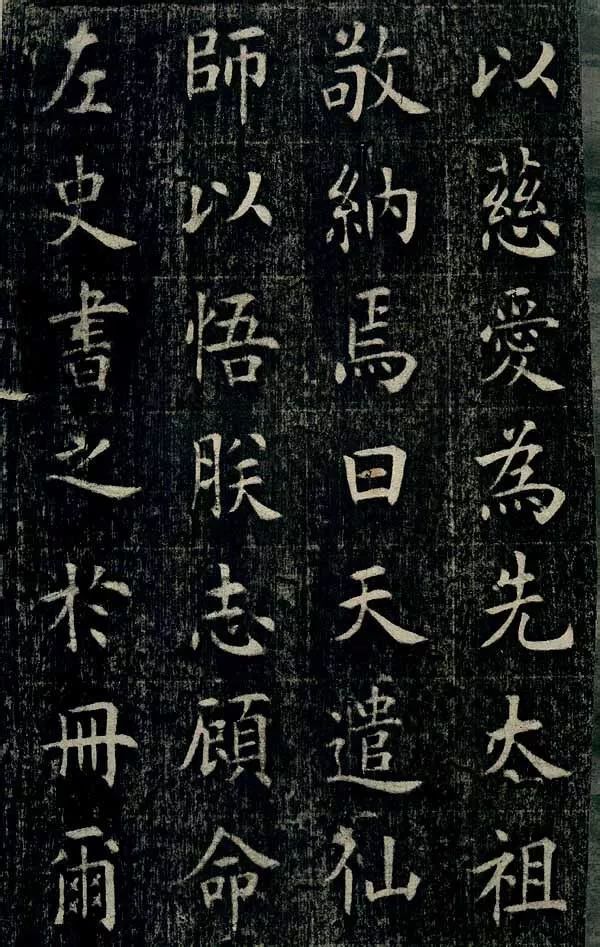 以慈愛為先太祖
敬納焉曰天遣仙
師以悟朕志顧命
左史書之於冊爾